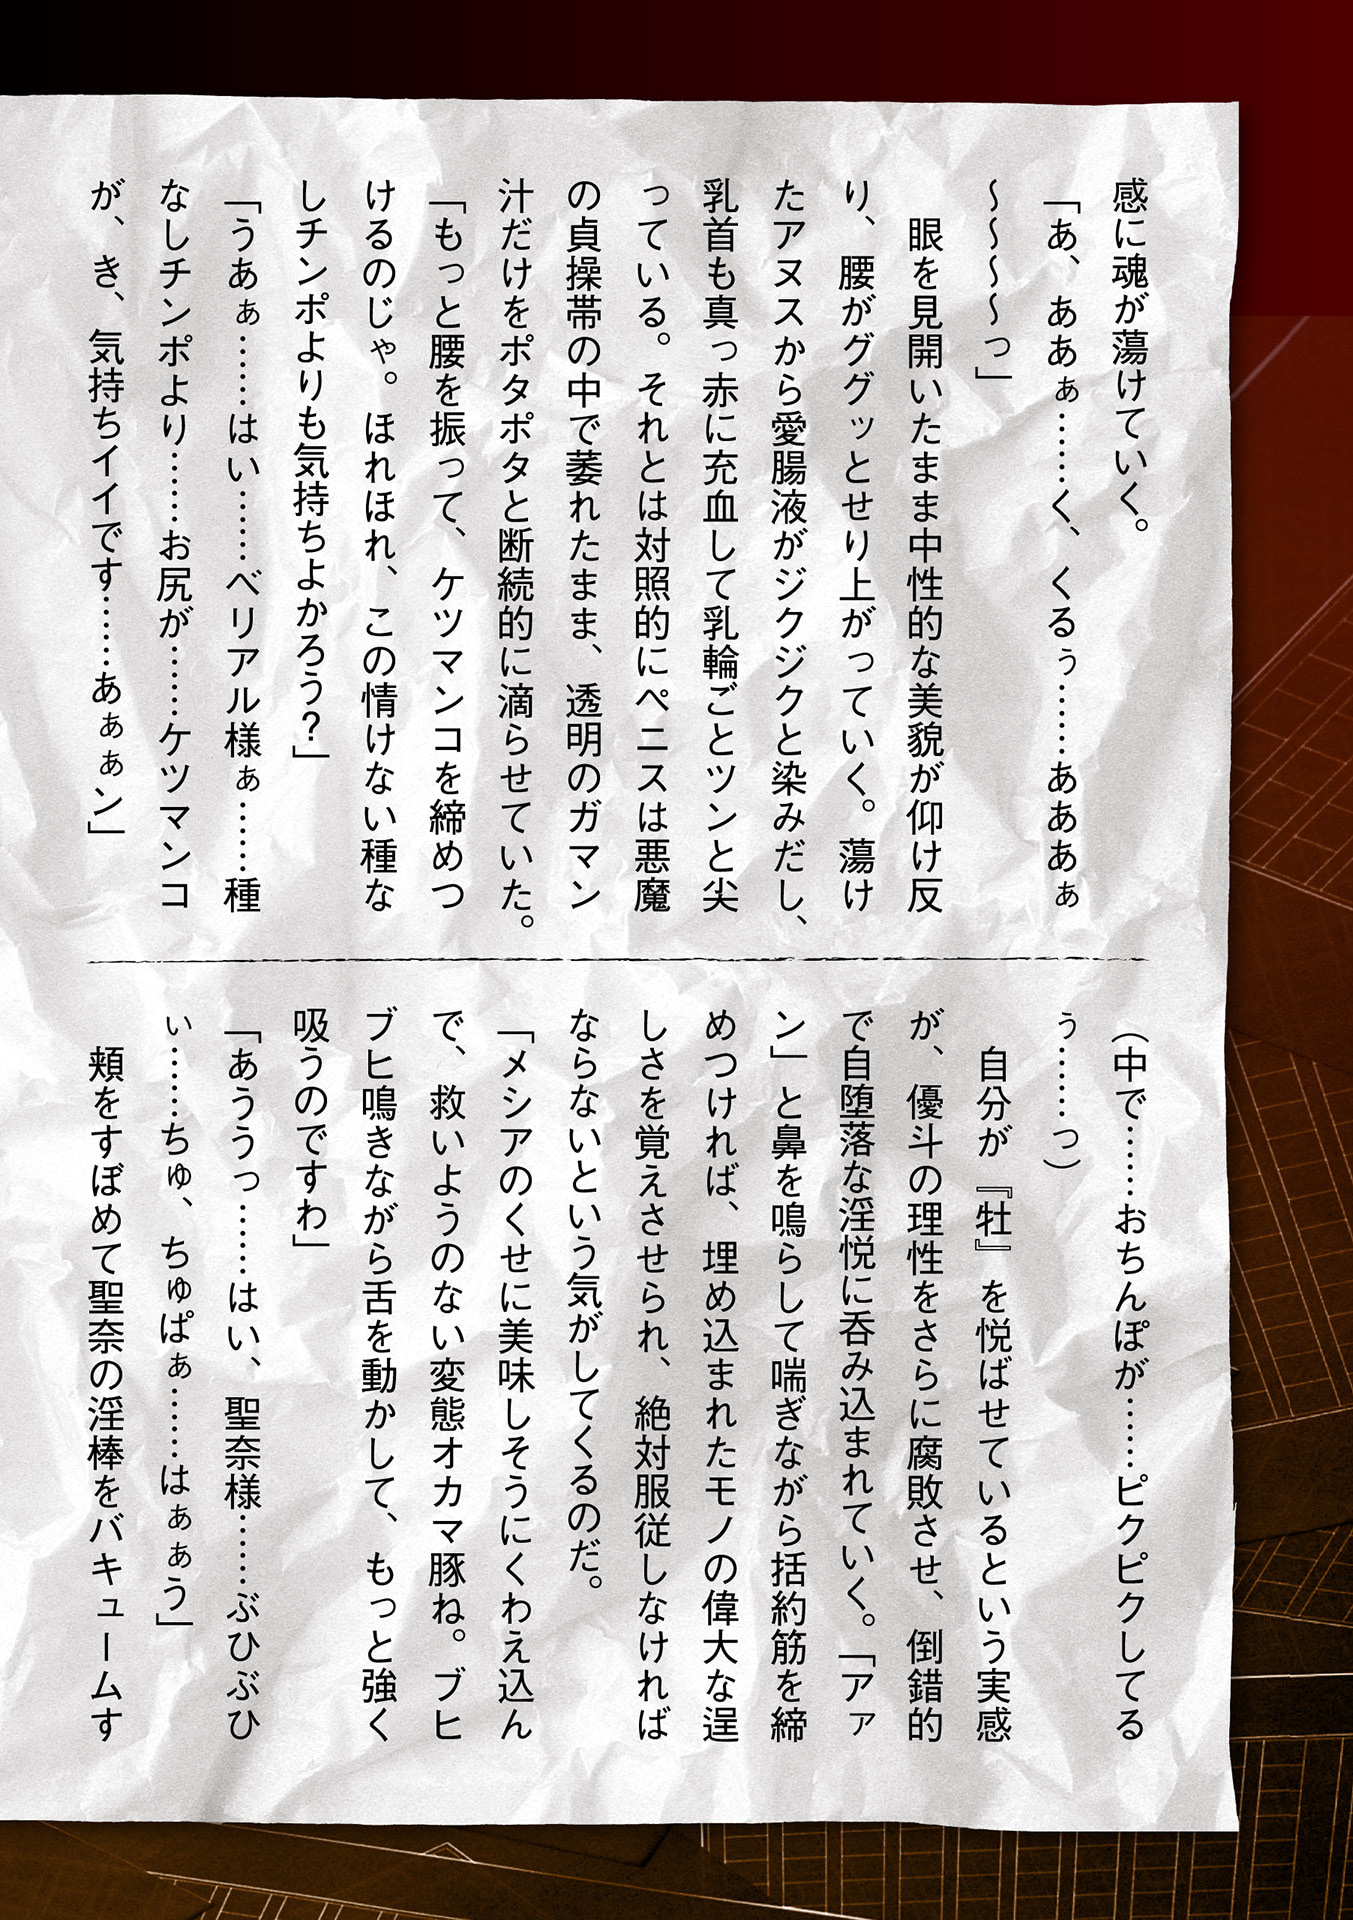 感に魂が蕩けていく。
「あ、ああぁ……く、くるぅ……あああぁ
～～～～っ」
　眼を見開いたまま中性的な美貌が仰け反
り、腰がググッとせり上がっていく。蕩け
たアヌスから愛腸液がジクジクと染みだし、
乳首も真っ赤に充血して乳輪ごとツンと尖
っている。それとは対照的にペニスは悪魔
の貞操帯の中で萎れたまま、透明のガマン
汁だけをポタポタと断続的に滴らせていた。
「もっと腰を振って、ケツマンコを締めつ
けるのじゃ。ほれほれ、この情けない種な
しチンポよりも気持ちよかろう？」
「うあぁ……はい……ベリアル様ぁ……種
なしチンポより……お尻が……ケツマンコ
が、き、気持ちイイです……あぁぁン」
（中で……おちんぽが……ピクピクしてる
ぅ……っ）
　自分が『牡』を悦ばせているという実感
が、優斗の理性をさらに腐敗させ、倒錯的
で自堕落な淫悦に呑み込まれていく。「アァ
ン」と鼻を鳴らして喘ぎながら括約筋を締
めつければ、埋め込まれたモノの偉大な逞
しさを覚えさせられ、絶対服従しなければ
ならないという気がしてくるのだ。
「メシアのくせに美味しそうにくわえ込ん
で、救いようのない変態オカマ豚ね。ブヒ
ブヒ鳴きながら舌を動かして、もっと強く
吸うのですわ」
「あううっ……はい、聖奈様……ぶひぶひ
ぃ……ちゅ、ちゅぱぁ……はぁぁう」
　頬をすぼめて聖奈の淫棒をバキュームす